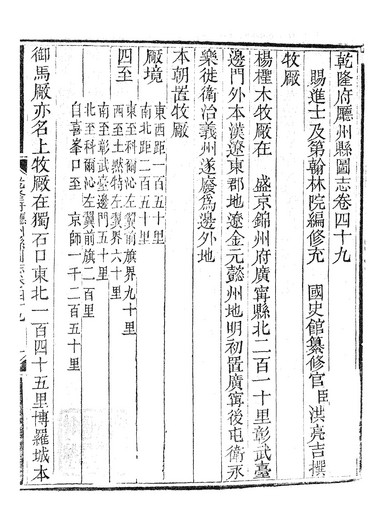 乾隆府廳州縣圖志卷四十九
賜進士及第翰林院編修充 國史館纂修官臣洪亮吉撰
牧厰
楊檉木牧厰在 盛京錦州府廣寧縣北二百一十里彰武臺
邊門外本漢遼東郡地遼金元懿州地明初置廣寧後屯衛永
樂徙衛治義州遂廢為邊外地
本朝置牧厰
厰境
東西距一百五十里
南北距二百五十里
四至
東至科爾沁左翼前旗界九十里
西至土默特左翼界六十里
南至彰武臺邊門五十里
北至科爾沁左翼前旗二百里
自喜峯口至 京師一千二百五十里
御馬厰亦名上牧厰在獨石口東北一百四十五里博羅城本